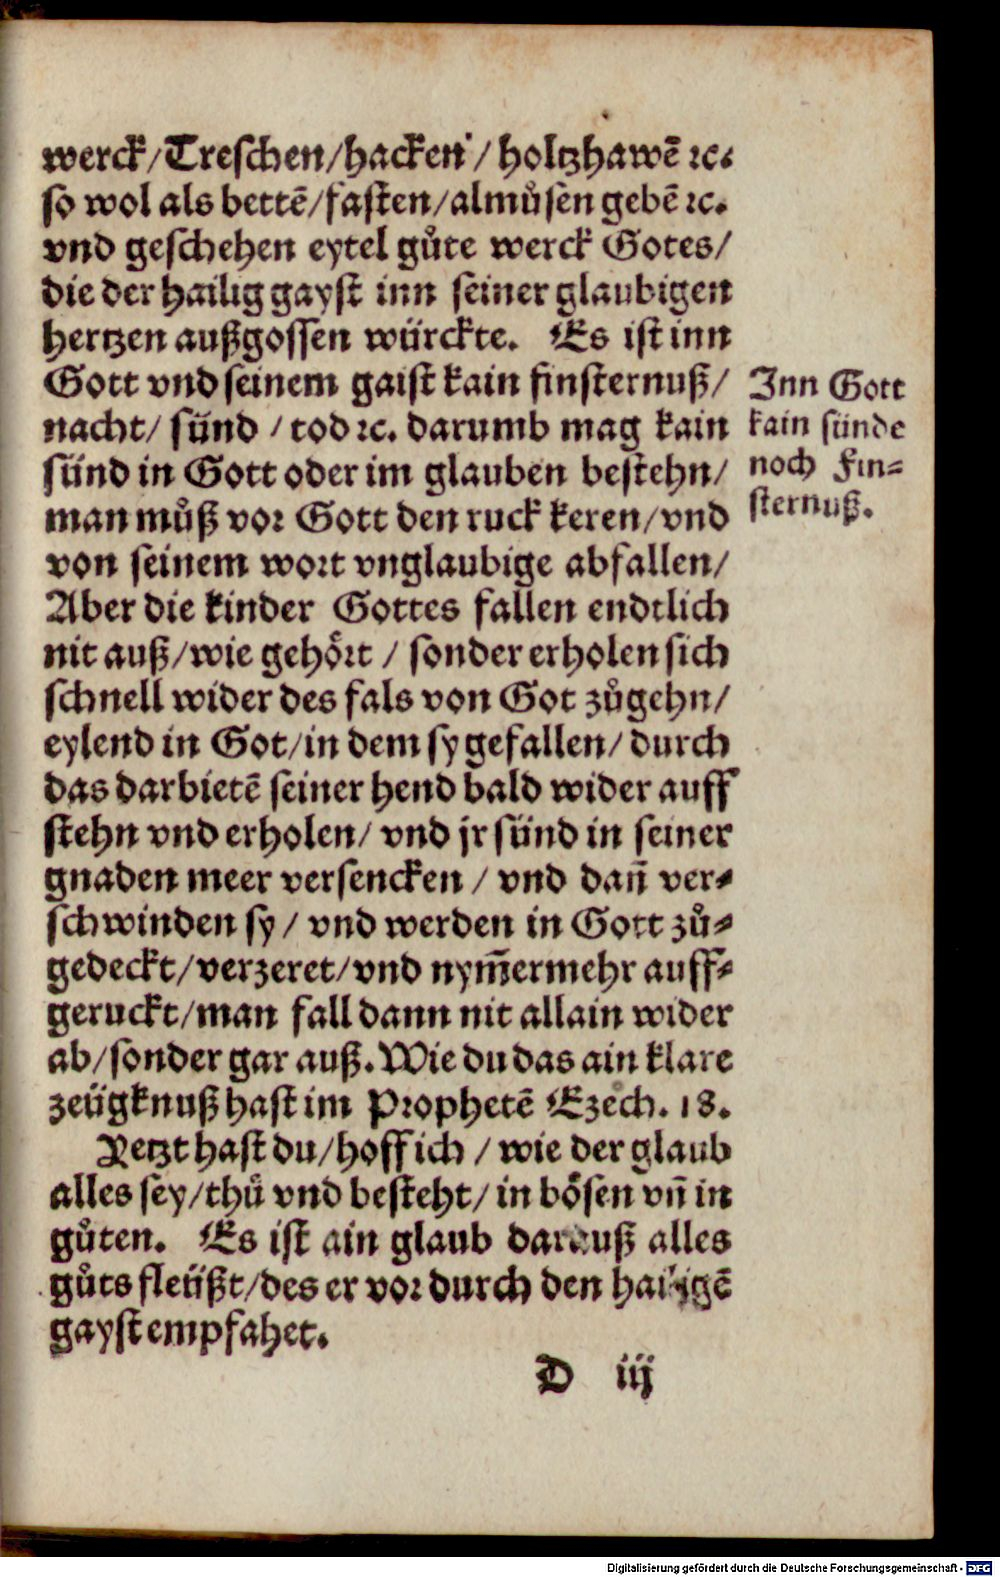 werck/Treschen/hacken/ holtzhawẽ ꝛc.
so wol als bettẽ/fasten/almůsen gebẽ ꝛc.
vnd geschehen eytel gůte werck Gotes/
die der hailig gayst inn seiner glaubigen
hertzen außgossen würckte. Es ist inn
Gott vnd seinem gaist kain finsternuß/
nacht/ sünd / tod ꝛc. darumb mag kain
sünd in Gott oder im glauben bestehn/
man můß vor Gott den ruck keren/vnd
von seinem wort vnglaubige abfallen/
Aber die kinder Gottes fallen endtlich
nit auß/wie gehört / sonder erholen sich
schnell wider des fals von Got zůgehn/
eylend in Got/in dem sy gefallen/ durch
das darbietẽ seiner hend bald wider auff
stehn vnd erholen/ vnd jr sünd in seiner
gnaden meer versencken / vnd dañ ver⸗
schwinden sy / vnd werden in Gott zů⸗
gedeckt/verzeret/vnd nym̃ermehr auff⸗
geruckt/man fall dann nit allain wider
ab/sonder gar auß. Wie du das ain klare
zeügknuß hast im Prophetẽ Ezech. 18.
Yetzt hast du/hoff ich / wie der glaub
alles sey/thů vnd besteht/ in bösen vñ in
gůten. Es ist ain glaub darauß alles
gůts fleüßt/des er vor durch den hailigẽ
gayst empfahet.
D iij
Inn Gott
kain sünde
noch Fin⸗
sternuß.
Digitalisierung gefördert durch die Deutsche Forschungsgemeinschaft - DFG